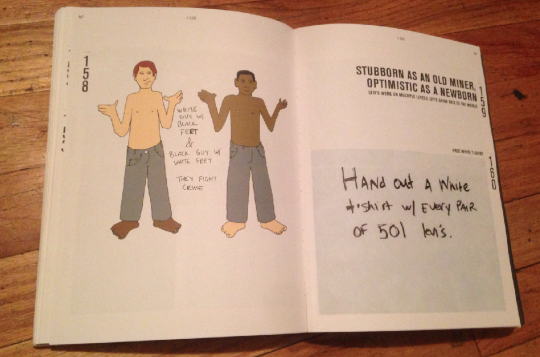 158
WHITE
GUY W/
BLACK
FEET
&
BLACK GUY W/
WHITE FEET
THEY FIGHT
CRIME
STUBBORN AS AN OLD MINER,
OPTIMISTIC AS A NEWBORN
159
FREE WHITE T-SHIRT
160
HAND OUT A WHITE
t-shirt w/ EVERY PAIR
OF 501 levi's.